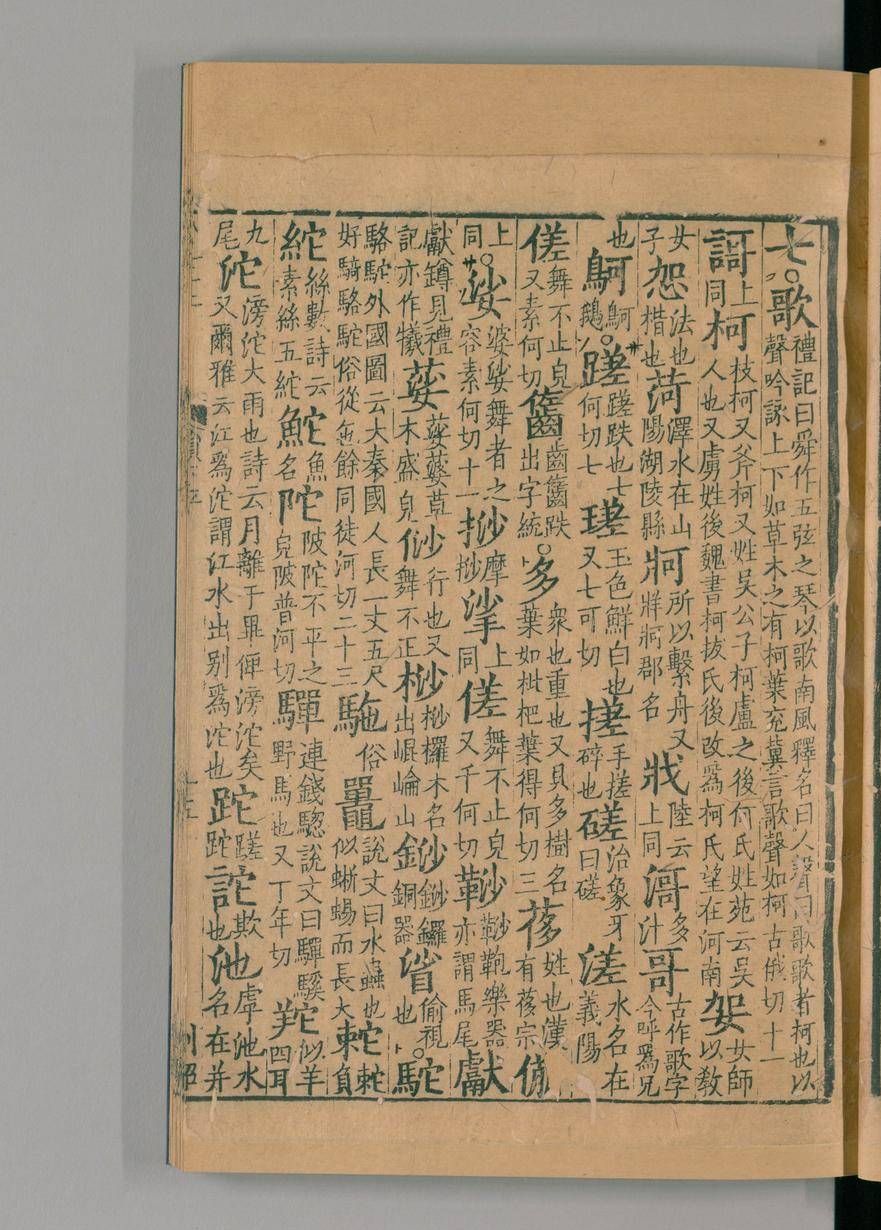 七○歌禮記曰舜作五弦之琴以歌南風釋名曰人聲曰歌歌者柯也以聲吟詠上下如草木之有柯葉兖冀言歌聲如柯古俄切十一
謌上同柯枝柯又斧柯又姓吳公子柯盧之後何氏姓苑云吳人也又虜姓後魏書柯拔氏後改爲柯氏望在河南妿女師以教
女子㤎法也楷也菏澤水在山陽湖陵縣牁所以繫舟又牂牁郡名戨陸云上同滒多汁哥古作歌字今呼爲兄
也鴚鴚鵝○蹉蹉跌也七何切七瑳玉色鮮白也又七可切搓手搓碎也磋治象牙曰磋溠水名在義陽
傞舞不止皃又素何切齹齒齹跌出字統○多衆也重也又貝多樹名葉如枇杷葉得何切三䔟姓也漢有䔟宗
上同○娑婆娑舞者之容素何切十一挱摩挱挲上同傞舞不止皃又千何切鞄樂器亦謂馬尾獻
獻罇見禮記亦作犧蔢草木盛皃行也又舞不正桫桫欏木名出崐崘山鈔鑼銅器䁟偷視也○駝
駱駝外國圖云大秦國人長一丈五尺好騎駱駝俗從㐌餘同徒河切二十三駞俗鼉說文曰水蟲也似蜥蜴而長大負
紽絲數詩云素絲五紽鮀魚名陀陂陀不平之皃陂普河切驒連錢騘說文曰驒騱野馬也又丁年切羓似羊四耳
九尾沱滂沱大雨也詩云月離于畢俾滂沱矣又爾雅云江爲沱謂江水出别爲沱也跎蹉跎詑欺也池虖池水名在并